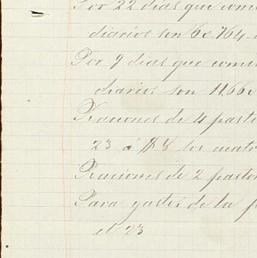 Por 22 dias que comi
diarios son 6c.764
Por 9 dias que comi
diarios son 11.66
Raciones de 4 pasto
23 á $8 los cuatr
Raciones de 2 pastor
Para gastos de la f
el 23